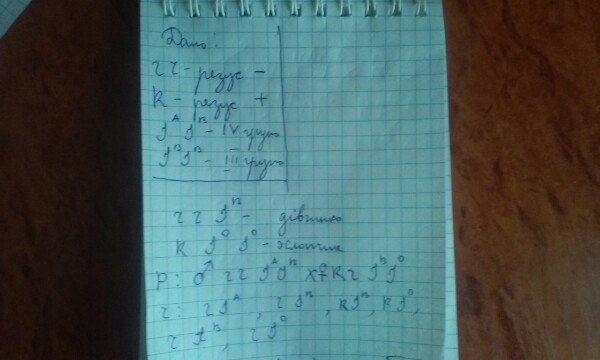 Дано:
rr - резус -
R - резус +
I^A I^B - IV група
I^B I^B - III група
rr I^B - дівчинка
R I^0 I^0 - хлопчик
P: ♂ rr I^A I^B x ♀ Rr I^B I^0
r: r I^A, r I^B, R I^B, R I^0,
r I^B, r I^0